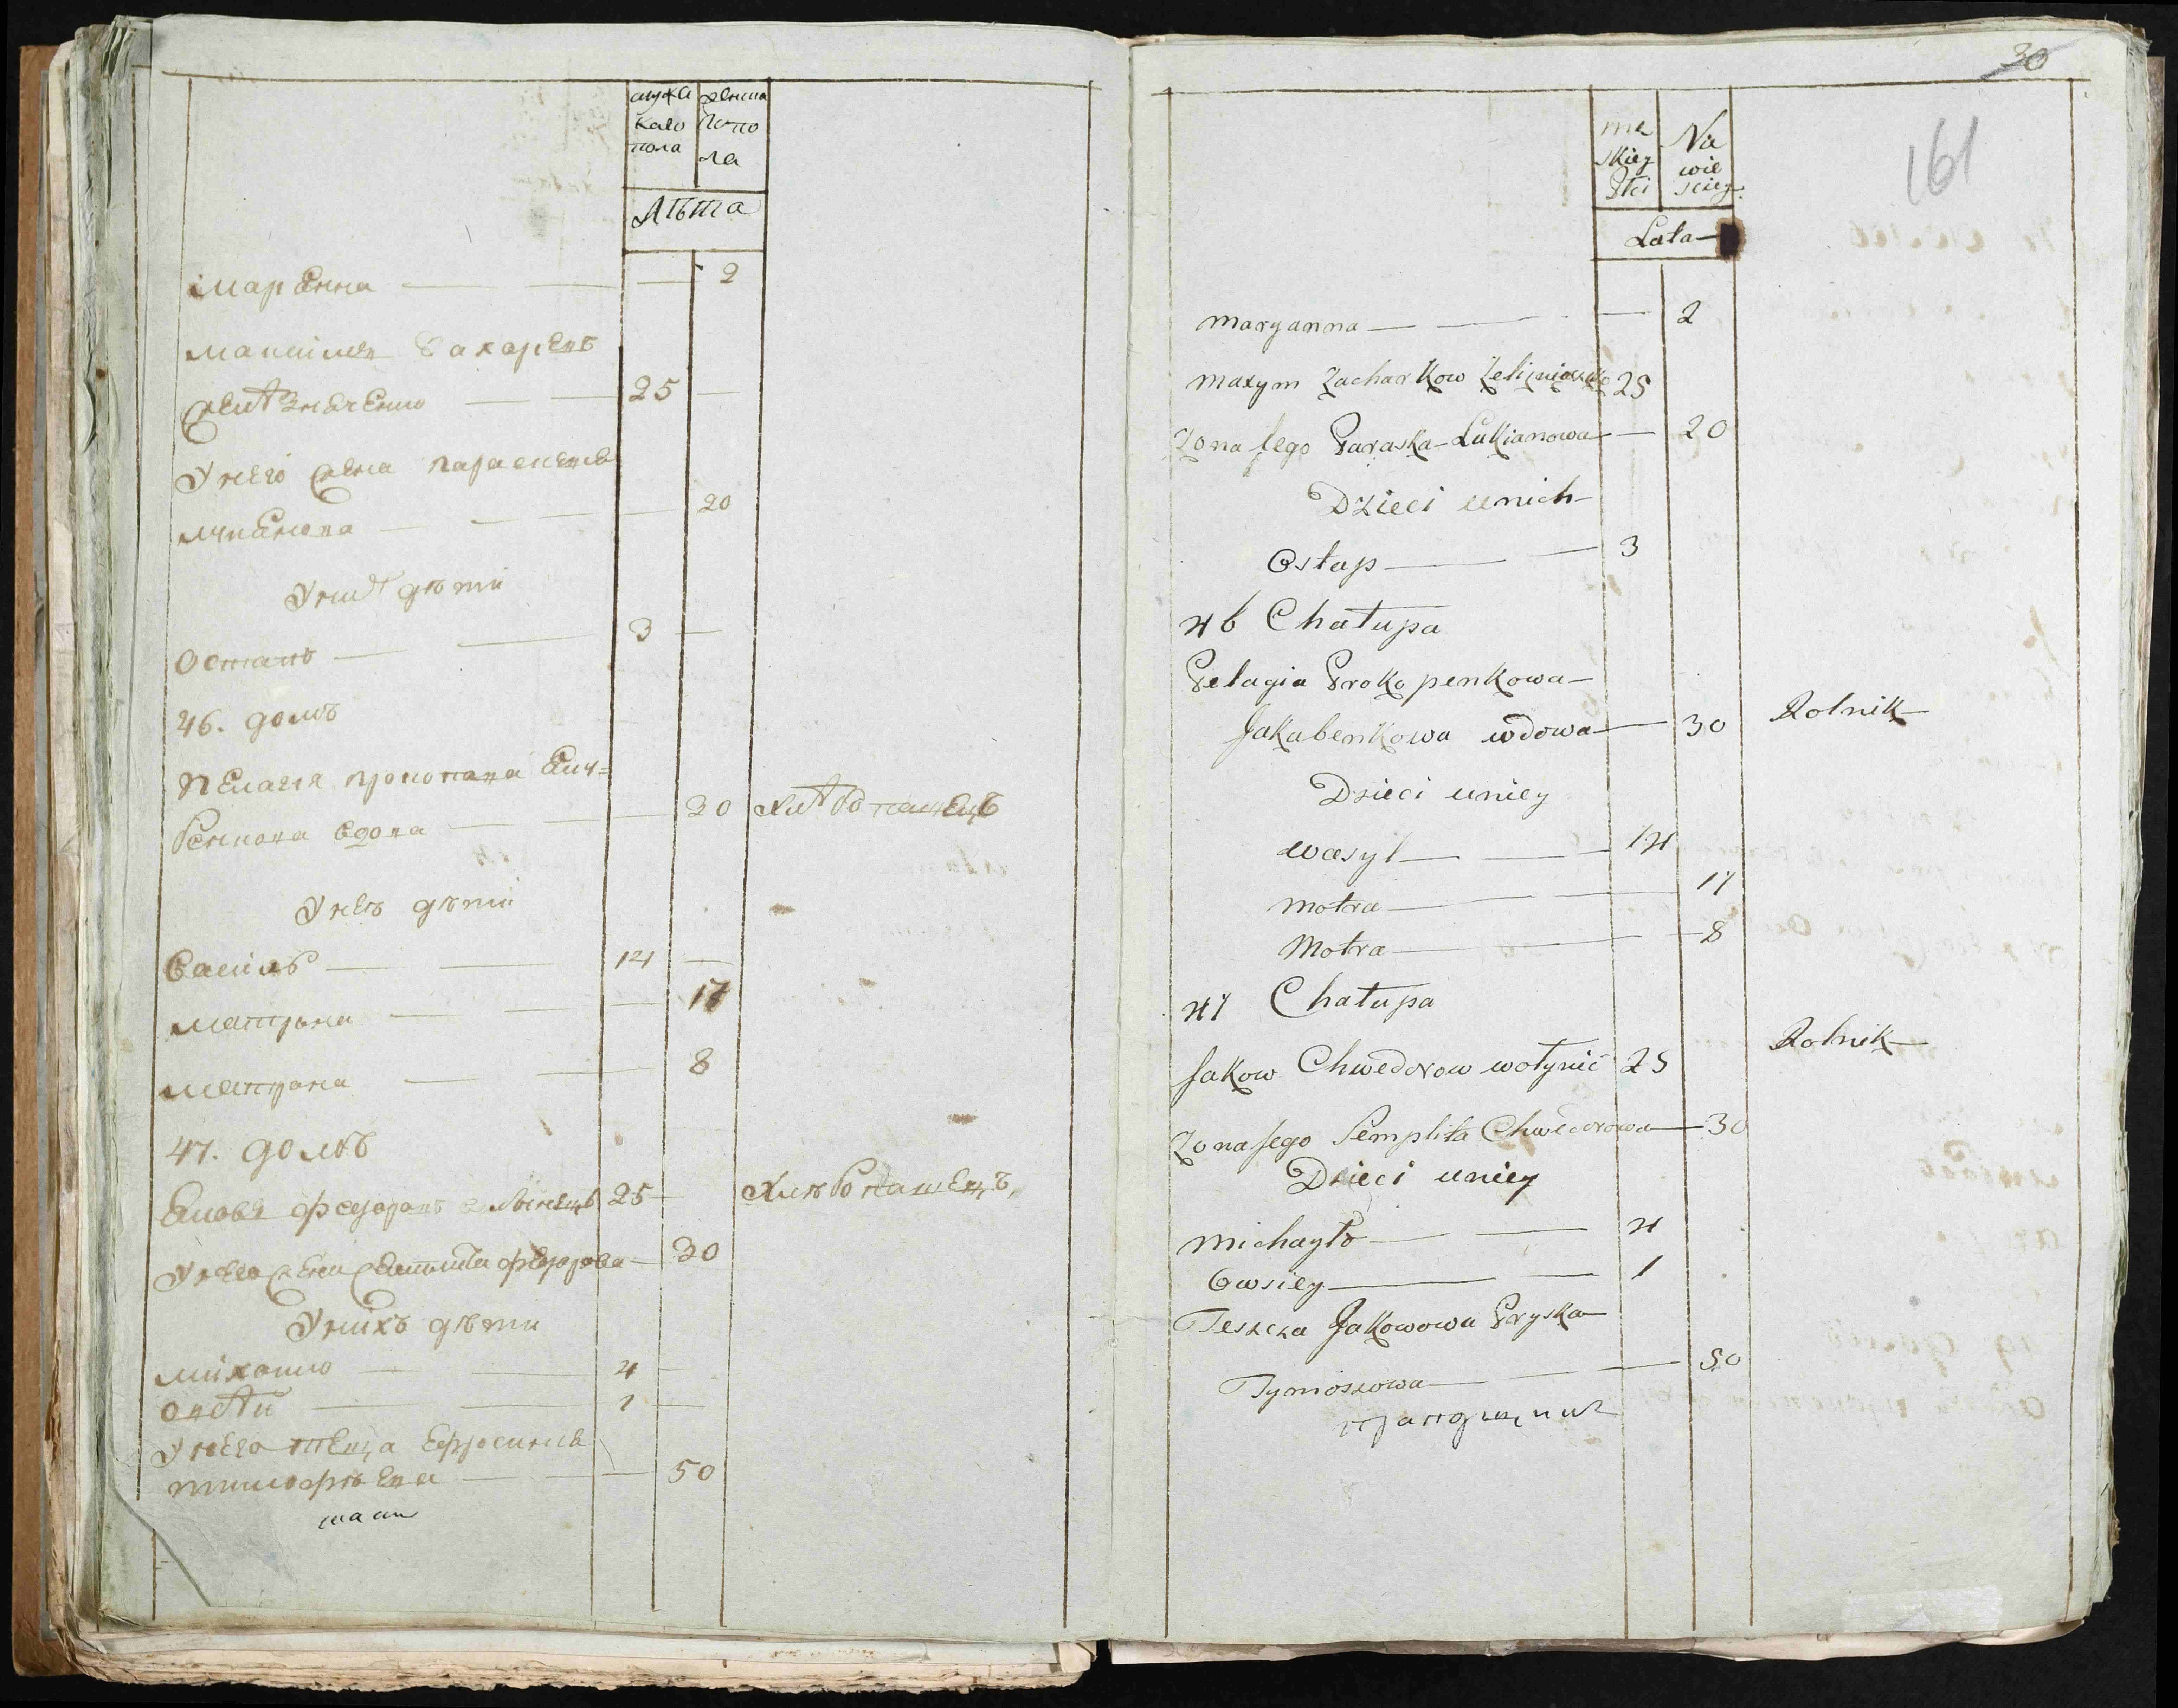 мужс
каго
пола
женска
го по
ла
Лѣта
Марѣнна — — — 2
максимъ Захаревъ
25 —
У него жена параскевія
лукіанова — — — 20
У них дѣти
Остапъ — — 3 —
46. домъ
Пелагія прокопова Яку=
бенкова вдова — — 30 хлѣбопашецъ
У неѣ дѣти
Василь — — 14 —
матрона — — — 17
матрона — — 8
47. домъ
Яковъ федоровъ 25 — Хлѣбопашецъ
У него жена федорова — 30
У нихъ дѣти
михаило — — 4 —
овсѣй — — 1 —
У него теща Ефросинія
тимофѣева — — — 50
30
161
mę
skiey
Płci
Nie
wie
sciey
Lata
Maryanna — — — 2
Maxym Zacharkow Zelizniaczko 25
Zona Jego Paraska Lukianowa — 20
Dzieci u nich
Ostap — — 3
46 Chałupa
Pelagia Prokopenkowa
Jakubenkowa wdowa — 30 Rolnik
Dzieci u niey
Wasyl — — 14
Motra — — 17
Motra — — 8
47 Chałupa
Jakow Chwedorow wołynić 25 Rolnik
Zona Jego Semplita Chwedorowa — 30
Dzieci u niey
Michayło — — 4
Owsiey — — 1
Teszcza Jakowowa Pryska
Tymoszowa — — 50